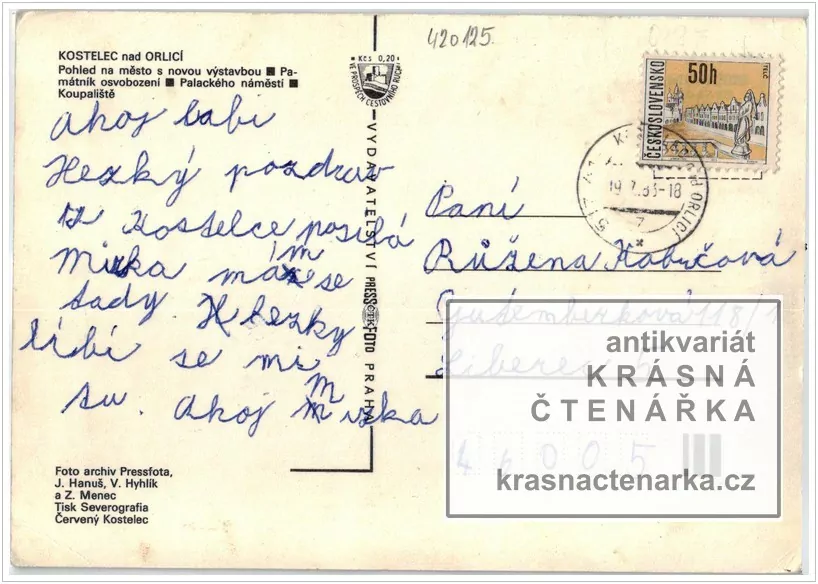 420125.
KOSTELEC nad ORLICÍ
Pohled na město s novou výstavbou ■ Pa-
mátník osvobození ■ Palackého náměstí ■
Koupaliště
Kčs 0,20
VE PROSPĚCH CESTOVNÍHO RUCHU
ČESKOSLOVENSKO
50h
TELČ
ORLICÍ
517 41
-18
ahoj babi
Hezký pozdrav
z Kostelce posílá
Mirka mám se
tady. H hezky
líbí se mi
tu. Ahoj M Mirka
VYDAVATELSTVÍ PRESSFOTO PRAHA
Paní
Růžena Kabičová
Gutemberková 118/1
Liberec
46005
antikvariát
KRÁSNÁ
ČTENÁŘKA
krasnactenarka.cz
Foto archiv Pressfota,
J. Hanuš, V. Hyhlík
a Z. Menec
Tisk Severografia
Červený Kostelec